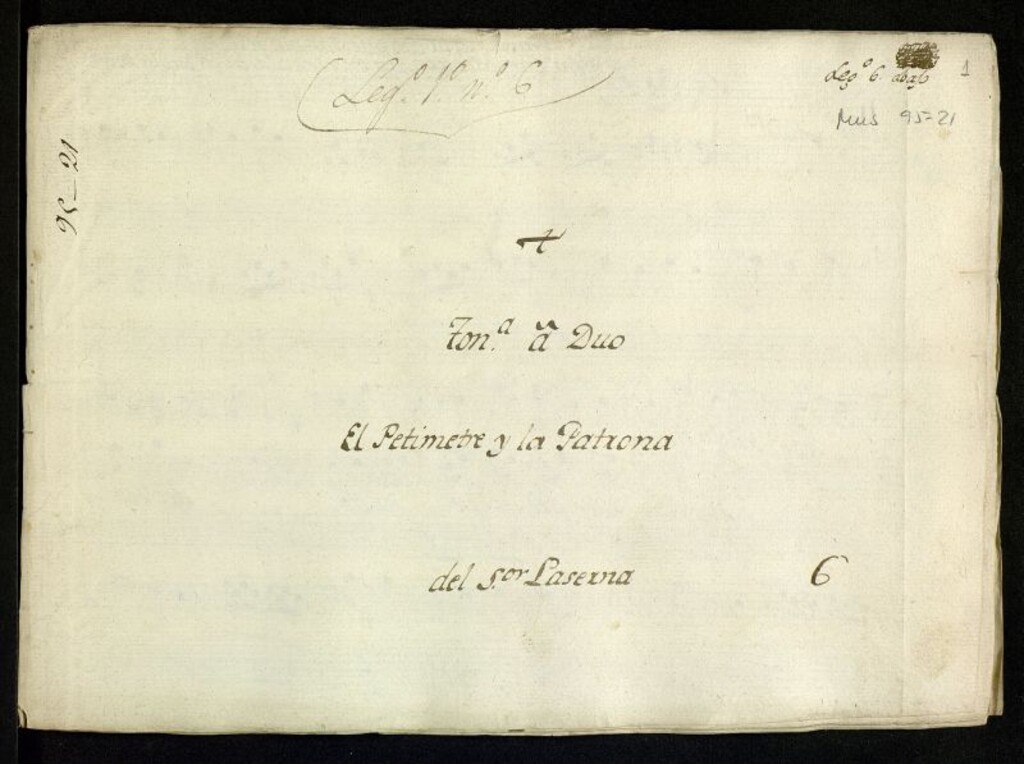 Leg.º 1.º n.º 6
Leg.º 6. abaxo
1
Mus 95-21
95-21
Ton.ª à Duo
El Petimetre y la Patrona
del S.or Laserna
6